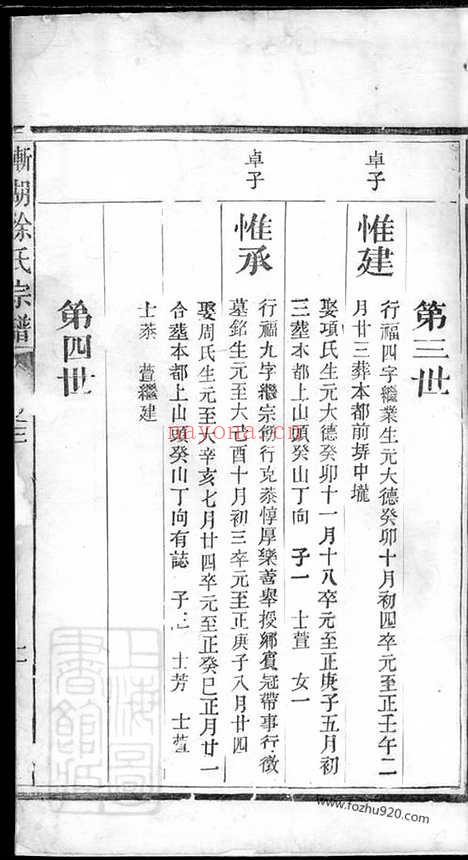 第三世
卓子
惟建
行福四字繼業生元大德癸卯十月初四卒元至正壬午二
月廿三葬本都前塝中壠
娶項氏生元大德癸卯十一月十八卒元至正庚子五月初
三塟本都上山頭癸山丁向 子一 士萱 女一
卓子
惟承
行福九字繼宗衍行克恭惇厚樂善舉授鄉賓冠帶事行徵
墓銘生元至大己酉十月初三卒元至正庚子八月廿四
娶周氏生元至大辛亥七月廿四卒元至正癸巳正月廿一
合塟本都上山頭癸山丁向有誌 子三 士芳 士萱
士恭 萱繼建
第四世
漸湖徐氏宗譜
卷之三
二
上海圖書館藏
nayona.cn
www.fozhu920.com